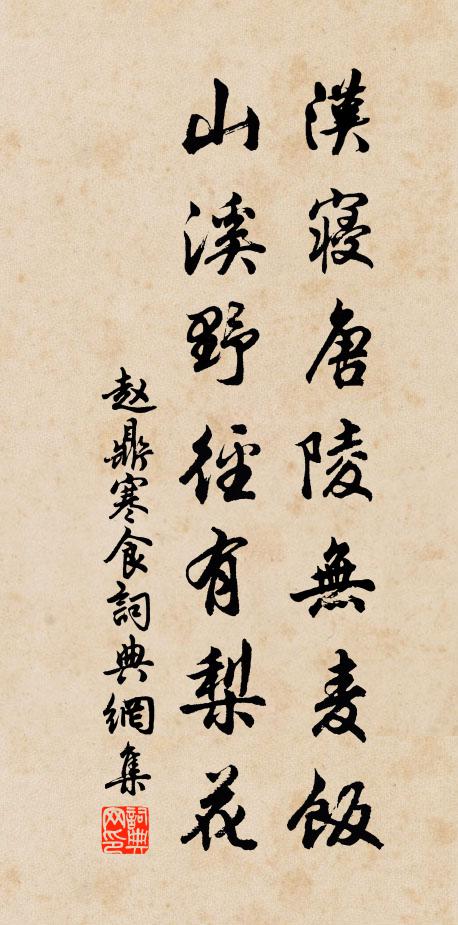 漢寝唐陵無麦飯
山溪野徑有梨花
赵鼎寒食詞典網集
詞典网印